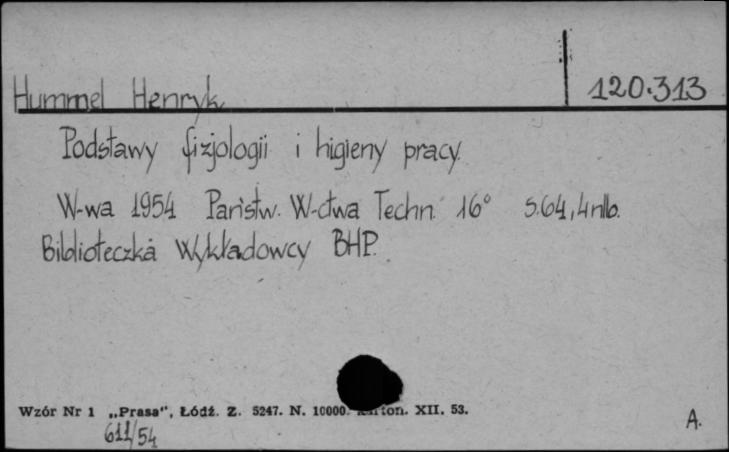 Hummel Henryk 120.313
Podstawy fizjologii i higieny pracy.
W-wa 1954 Państw. W-ctwa Techn. 16° s.64, 4 nlb.
Biblioteczka Wykładowcy BHP.
Wzór Nr 1 „Prasa", Łódź. Z. 5247. N. 10000. karton. XII. 53.
611/54 A.